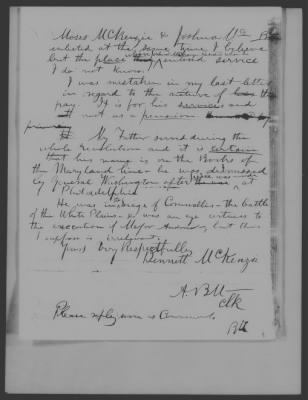 Moses McKenzie & Joshua
enlisted at the same time I believe
but the place and service
I do not know.
I was mistaken in my last letter
in regard to the nature of the
pay. It is for his services and
It is not a pension by
My Father served during the
whole Revolution and it is certain
that his name is on the Books of
the Maryland line - he was dismissed
by General Washington after at
Philadelphia
He was in the siege of Cornwallis - the battle
of the White Plains - was an eye witness to
the execution of Major but this
I suppose is irrelevant.
Yours Very Respectfully
Bennett McKenzie
Clk
Please reply soon